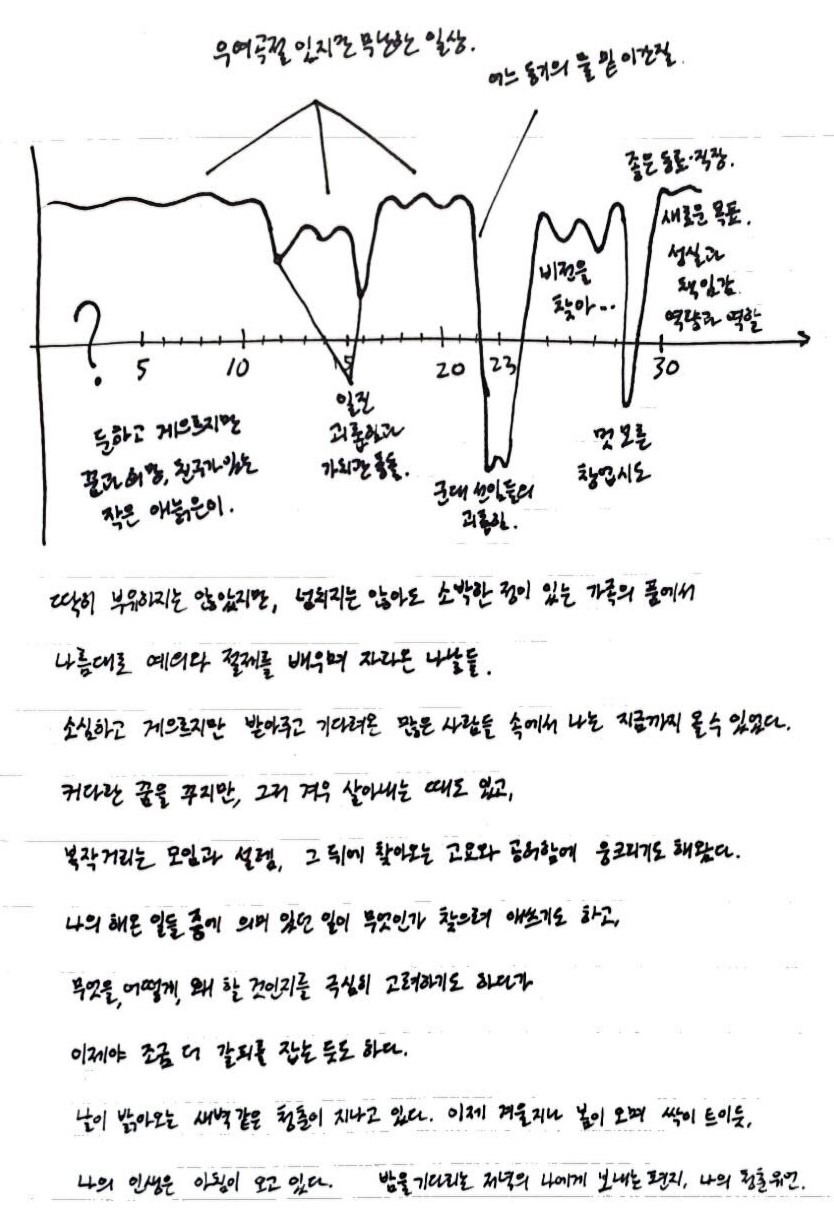 우여곡절 있지만 무난한 일상.
어느 동기의 물 밑 이간질.
좋은 동료·직장.
새로운 목표.
성실과
책임감
역량과 역할
비전을
찾아...
?
5
10
15
20
23
30
둔하고 게으르지만
꿈과 희망, 친구가 있는
작은 애늙은이.
일진
괴롭힘과
가치관 충돌.
군대 선임들의
괴롭힘.
멋 모른
창업시도
딱히 부유하지는 않았지만, 넘치지는 않아도 소박한 정이 있는 가족의 품에서
나름대로 예의와 절제를 배우며 자라온 나날들.
소심하고 게으르지만 받아주고 기다려온 많은 사람들 속에서 나는 지금까지 올 수 있었다.
커다란 꿈을 꾸지만, 그저 겨우 살아내는 때도 있고,
북작거리는 모임과 설렘, 그 뒤에 찾아오는 고요와 공허함에 웅크리기도 해왔다.
나의 해온 일들 중에 의미 있던 일이 무엇인가 찾으려 애쓰기도 하고,
무엇을, 어떻게, 왜 할 것인지를 극심히 고려하기도 하다가
이제야 조금 더 갈피를 잡는 듯도 하다.
날이 밝아오는 새벽같은 청춘이 지나고 있다. 이제 겨울지나 봄이 오며 싹이 트이듯,
나의 인생은 아침이 오고 있다. 밤을 기다리는 저녁의 나에게 보내는 편지, 나의 청춘유언.